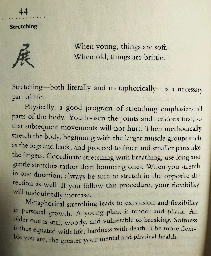 44
Stretching
展
When young, things are soft.
When old, things are brittle.
Stretching—both literally and metaphorically—is a necessary
part of life.
Physically, a good program of stretching emphasizes all
parts of the body. You loosen the joints and tendons first, so
that subsequent movements will not hurt. Then methodically
stretch the body, beginning with the larger muscle groups such
as the legs and back, and proceed to finer and smaller parts like
the fingers. Coordinate stretching with breathing; use long and
gentle stretches rather than bouncing ones. When you stretch
in one direction, always be sure to stretch in the opposite di-
rection as well. If you follow this procedure, your flexibility
will undoubtedly increase.
Metaphorical stretching leads to expansion and flexibility
in personal growth. A young plant is tender and pliant. An
older one is stiff, woody, and vulnerable to breaking. Softness
is thus equated with life, hardness with death. The more flexi-
ble you are, the greater your mental and physical health.